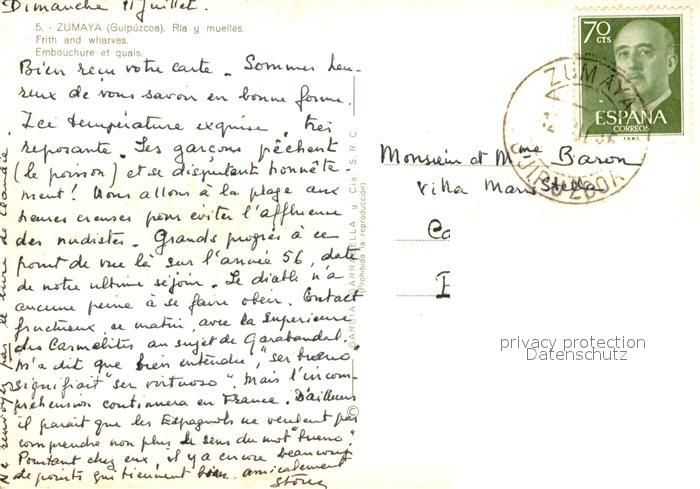 Dimanche 11 Juillet.
5. - ZUMAYA (Guipúzcoa). Ría y muelles.
Frith and wharves.
Embouchure et quais.
Bien reçu votre carte. Sommes heu-
reux de vous savoir en bonne forme.
Ici température exquise, très
reposante. Les garçons pêchent
(le poisson) et se disputent honnête-
ment! Nous allons à la plage aux
heures creuses pour éviter l'affluence
des nudistes. Grands progrès à ce
point de vue là sur l'année 56, date
de notre ultime séjour. Le diable n'a
aucune peine à se faire obéir. Contact
fructueux, ce matin, avec la Supérieure
des Carmélites au sujet de Garabandal.
M'a dit que bien entendu, "ser bueno
signifiait "ser virtuoso". Mais l'incom-
préhension continuera en France. D'ailleurs
il paraît que les Espagnols ne veulent pas
comprendre non plus le sens du mot "bueno".
Pourtant chez eux, il y a encore beaucoup
de points qui tiennent bien. amicalement
Ne renvoyez pas le livre de
© GARCIA GARRABELLA y Cía - S.R.C.
(Prohibida la reproducción)
70
CTS
ESPAÑA
CORREOS
F.N.M.T.
ZUMAYA
GUIPUZCOA
Monsieur et Mme Baron
Villa Maris Stella
privacy protection
Datenschutz